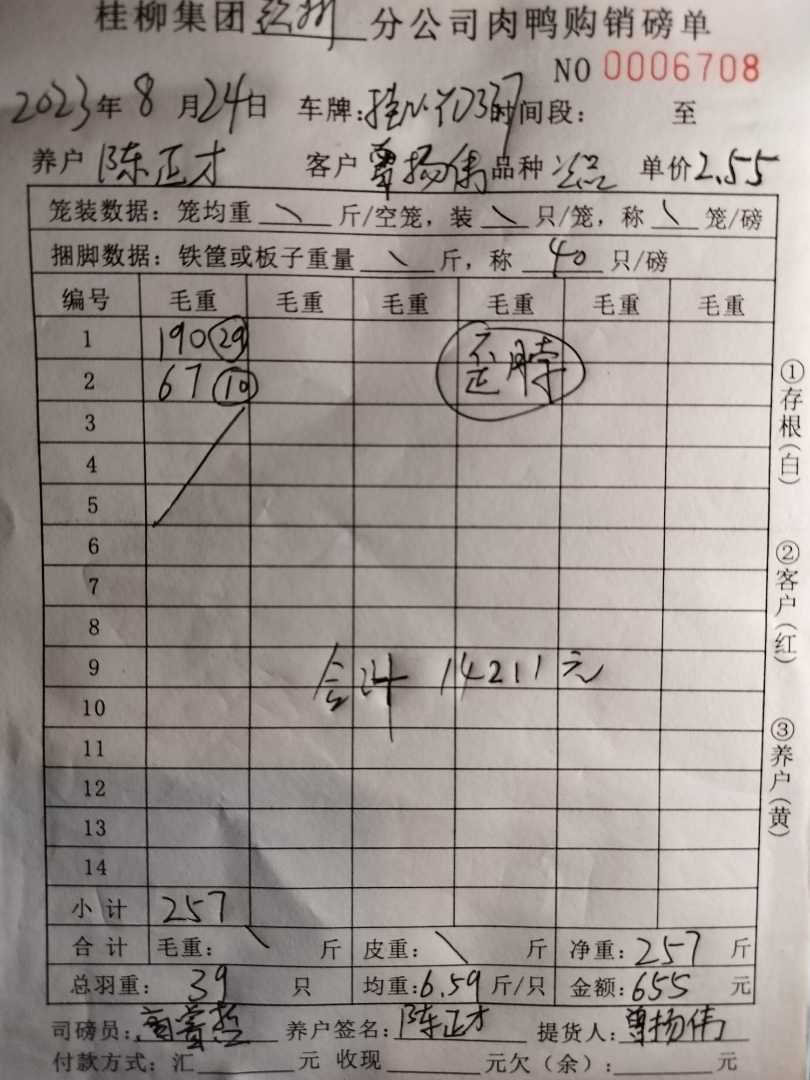 桂柳集团 钦州 分公司肉鸭购销磅单
NO 0006708
2023年8月24日 车牌: 时间段: 至
养户 陈正才 客户 覃扬伟 品种 次品 单价 2.55
笼装数据: 笼均重 \ 斤/空笼, 装 \ 只/笼, 称 \ 笼/磅
捆脚数据: 铁筐或板子重量 \ 斤, 称 40 只/磅
编号 毛重 毛重 毛重 毛重 毛重 毛重
1 190 29 歪脖
2 67 10
3
4
5
6
7
8
9 合计 14211元
10
11
12
13
14
小计 257
合计 毛重: \ 斤 皮重: \ 斤 净重: 257 斤
总羽重: 39 只 均重: 6.59 斤/只 金额: 655 元
司磅员: 养户签名: 陈正才 提货人: 覃扬伟
付款方式: 汇 元 收现 元欠(余): 元
①存根(白)
②客户(红)
③养户(黄)